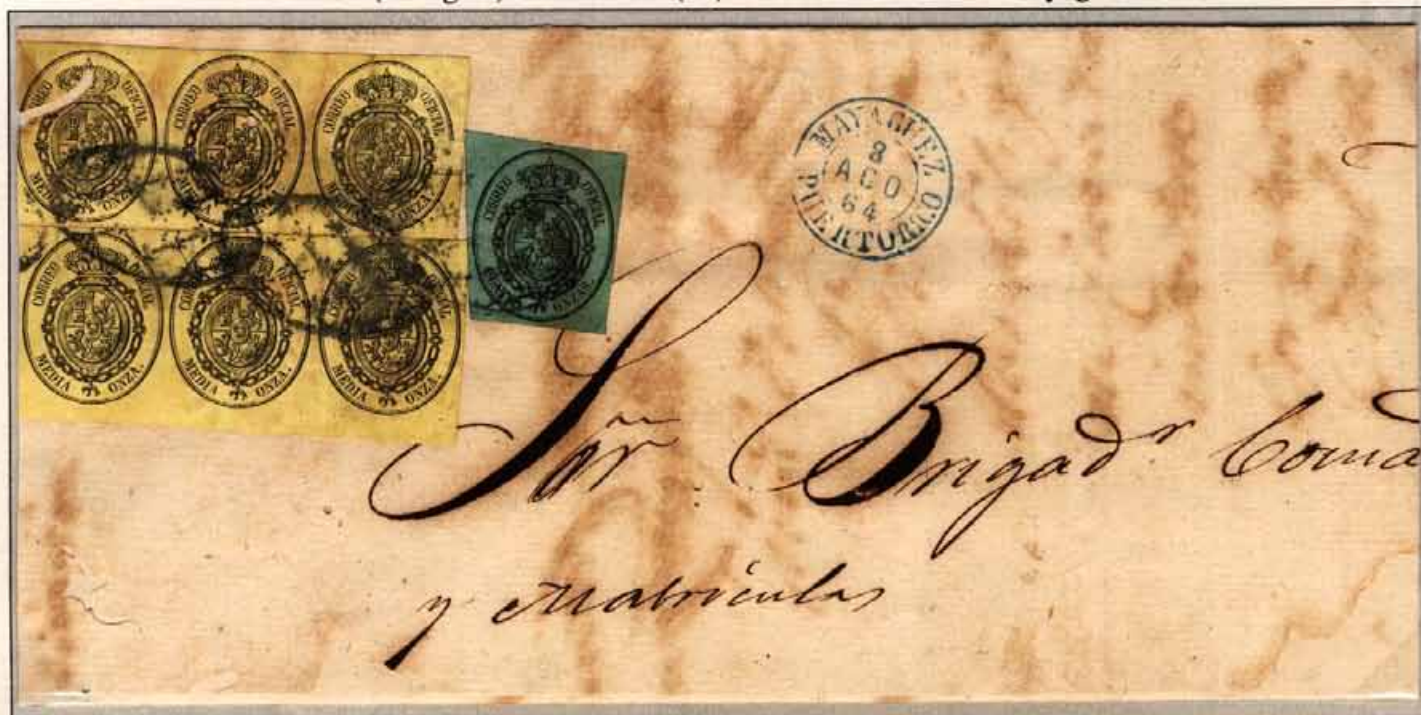 CORREO OFICIAL MEDIA ONZA.
CORREO OFICIAL MEDIA ONZA.
CORREO OFICIAL MEDIA ONZA.
CORREO OFICIAL MEDIA ONZA.
CORREO OFICIAL MEDIA ONZA.
CORREO OFICIAL MEDIA ONZA.
CORREO OFICIAL ONZAS.
MAYAGUEZ
8
AGO
64
PUERTORICO
Sõr Brigad.r Coma
y Matriculas